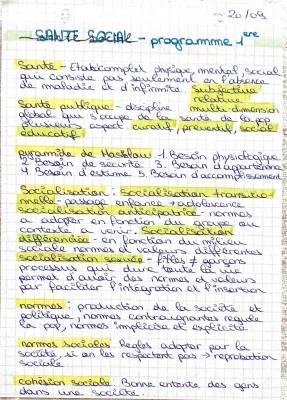 20/09
SANTE SOCIAL - programme 1ère
Santé - Etat complet physique, mental, social
qui consiste pas seulement en l'absence
de maladie et d'infirmité. subjective
relative
Santé publique - discipline multi-dimension
global qui s'occupe de la santé de la pop
plusieurs aspect. curatif, preventif, social
educatif
pyramide de Maslow - 1. Besoin physiologique
2. Besoin de sécurité 3. Besoin d'appartenance
4. Besoin d'estime 5. Besoin d'accomplissement
Socialisation : Socialisation transitio-
nnelle - passage enfance → adolescence
socialisation anticipatrice - normes
a adopter en fonction du groupe ou
contexte a venir. Socialisation
différenciée - en fonction du milieu
sociale normes et valeurs différentes
Socialisation sexuée - filles ≠ garçons
processus qui dure toute la vie
permet d'avoir des normes et valeurs
par faciliter l'intégration et l'insertion
normes : production de la société et
politique, normes contraignantes regule
la pop, normes implicite et explicite
normes sociales. Regles adopter par la
société, si on les respectent pas → reprobation
sociale
cohésion sociale. Bonne entente des gens
dans une société.